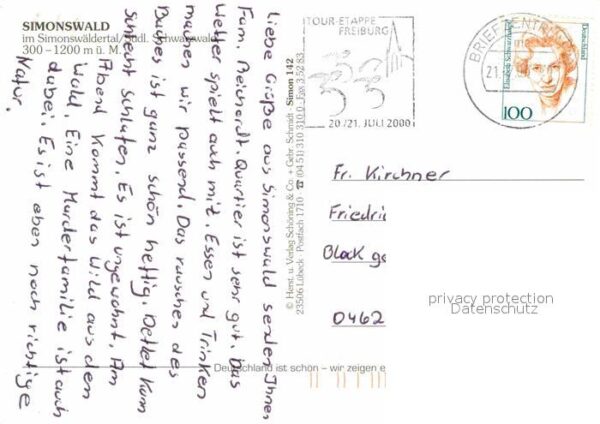 SIMONSWALD
im Simonswäldertal/Südl. Schwarzwald
300 – 1200 m ü. M.
Liebe Grüße aus Simonswald senden Ihnen
Fam. Reichardt. Quartier ist sehr gut, das
Wetter spielt auch mit. Essen und Trinken
munden wir passend. Das rauschen des
Baches ist ganz schön heftig. Detlef kann
schlecht schlafen. Es ist ungewohnt. Am
Abend kommt das Wild aus den
Wald. Eine Marderfamilie ist auch
dabei. Es ist eben noch richtige
Natur.
© Herst. u. Verlag Schöning & Co. + Gebr. Schmidt · Simon 142
23506 Lübeck · Postfach 1710 · ☎ (04 51) 310 310 0 · Fax 3 52 83
TOUR-ETAPPE
FREIBURG
20./21. JULI 2000
BRIEFZENTRUM
21.
Deutschland
Elisabeth Schwarzhaupt
100
Fr. Kirchner
Friedri
Block ge
0462
privacy protection
Datenschutz
Deutschland ist schön – wir zeigen e